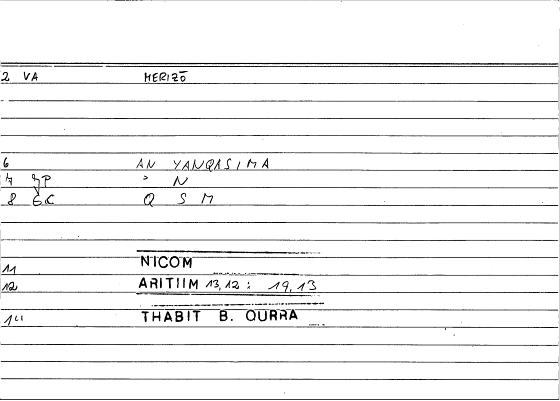 2 VA MERIZŌ
6 AN YANQASIMA
7 N
8 Q S M
11 NICOM
12 ARITIIM 13,12 : 19,13
THABIT B. QURRA